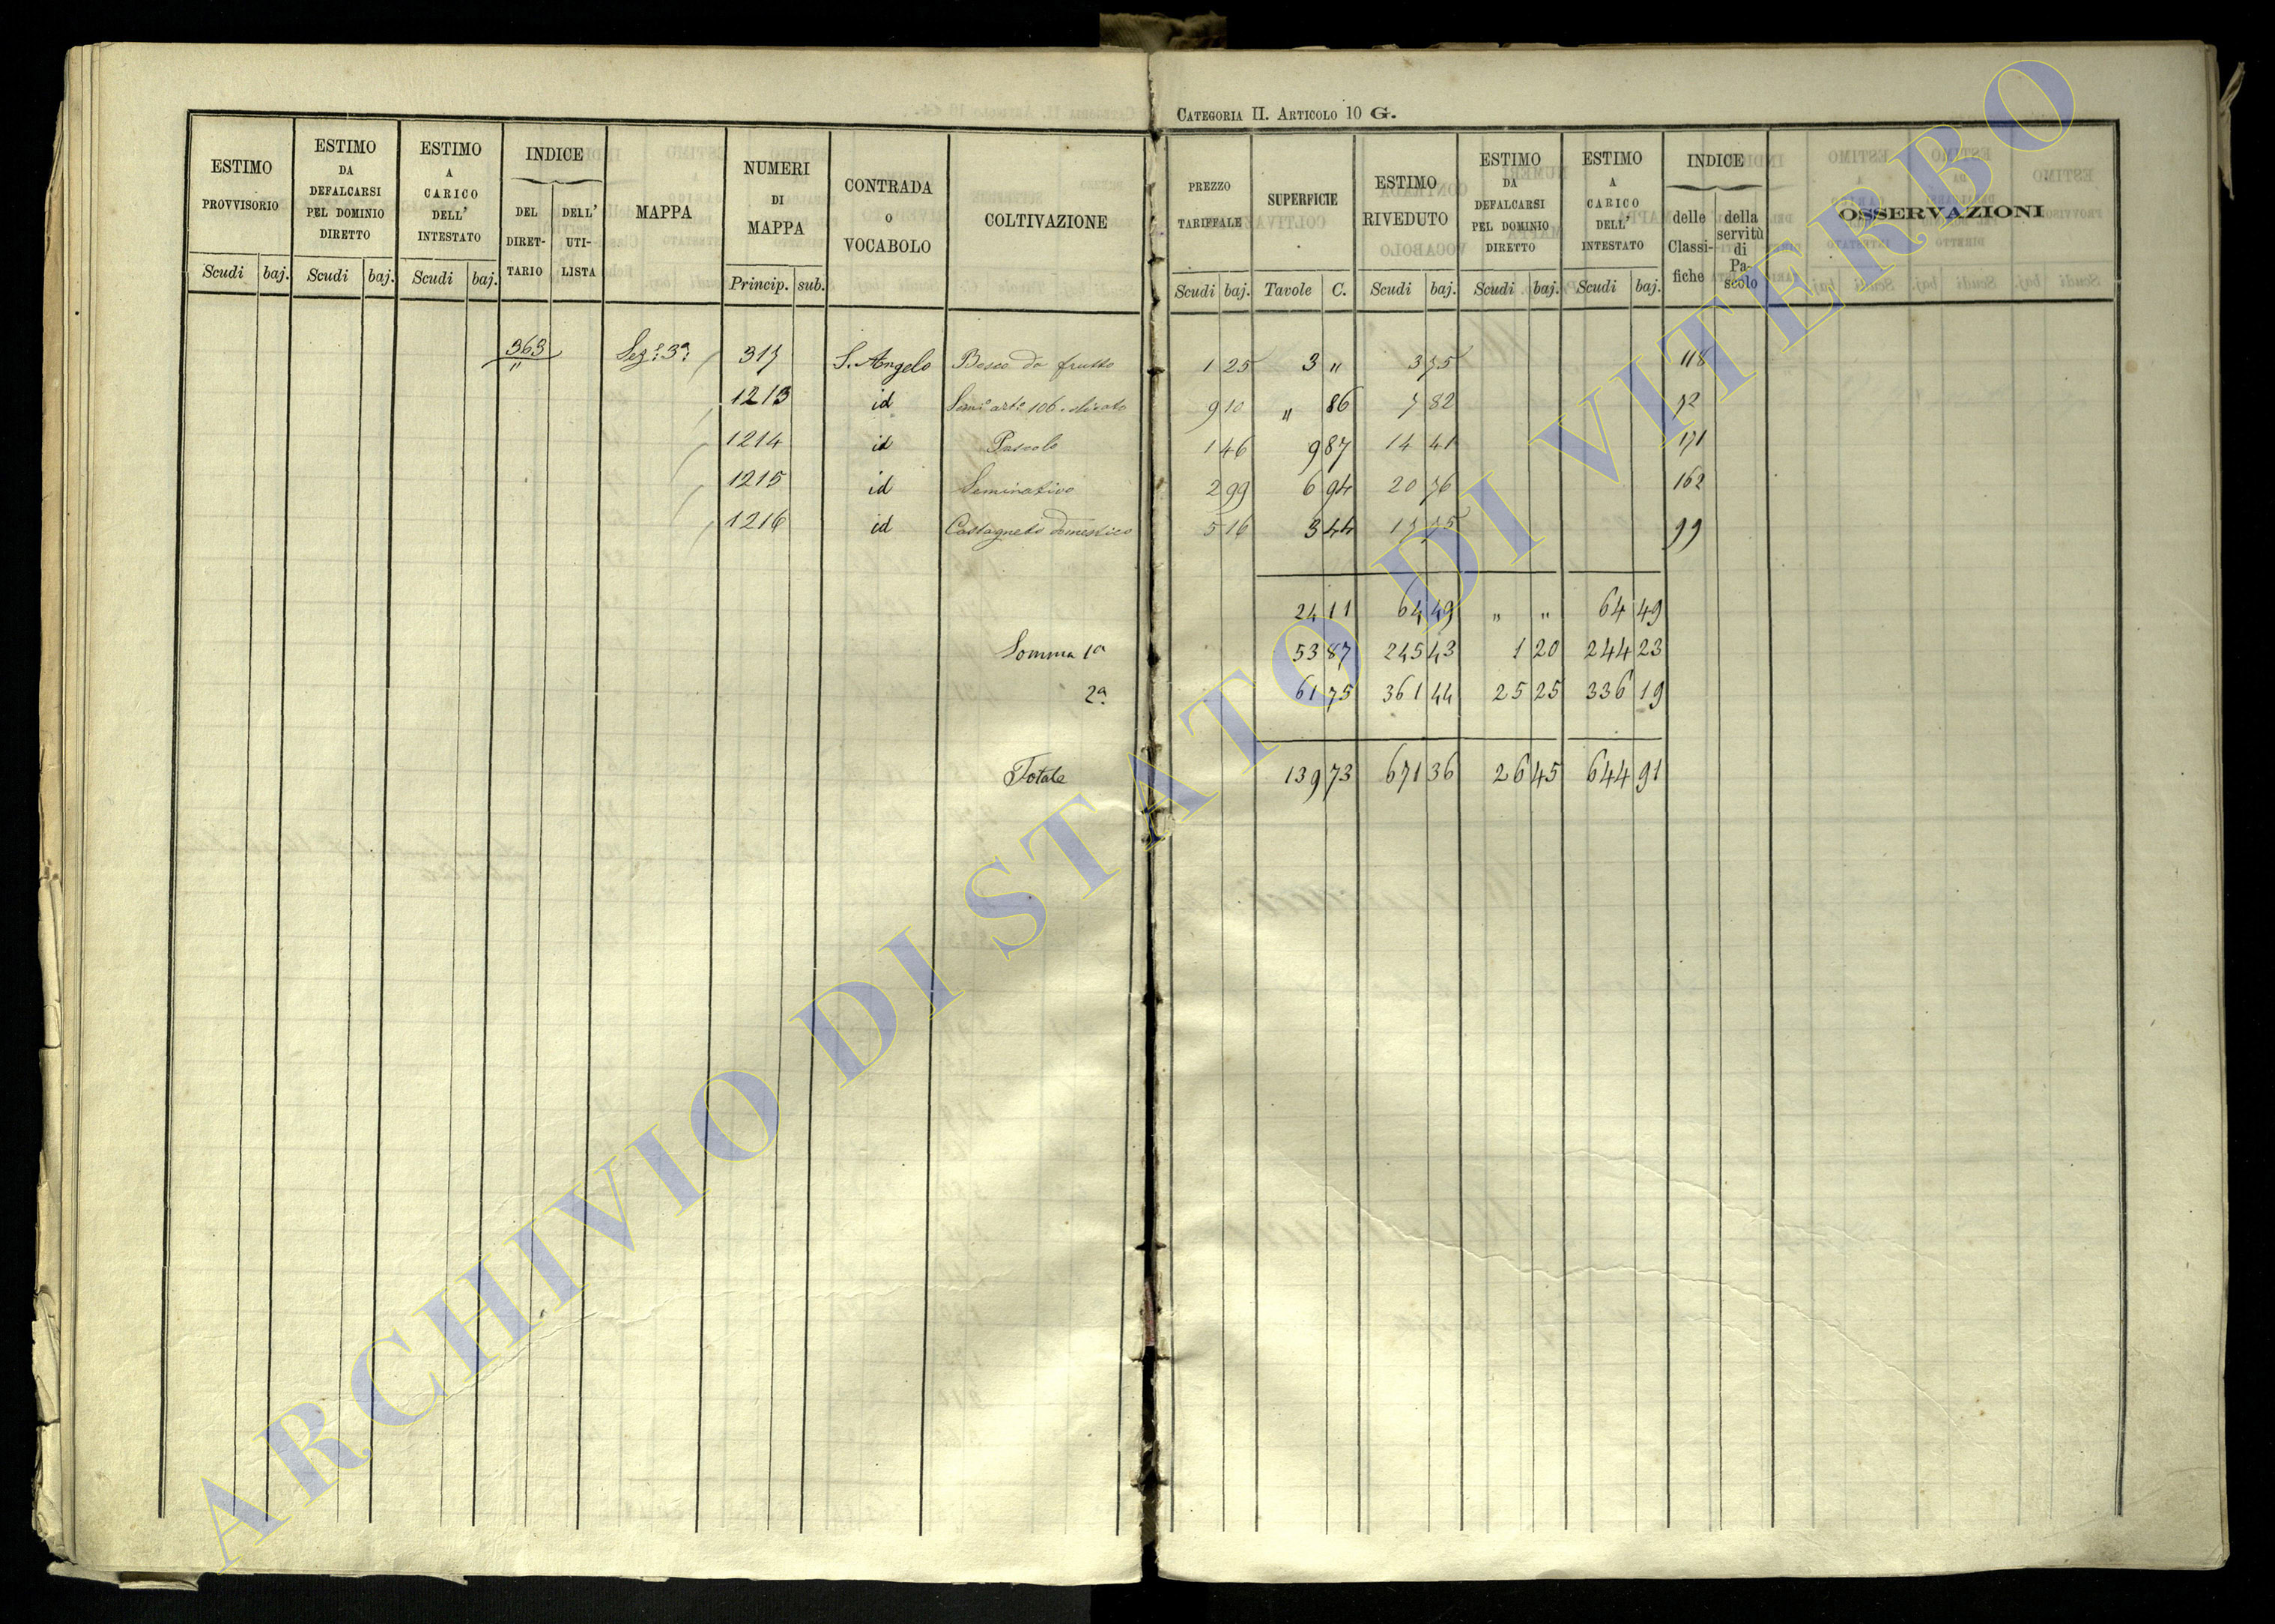 CATEGORIA II. ARTICOLO 10 G.
ESTIMO PROVVISORIO Scudi baj.
ESTIMO DA DEFALCARSI PEL DOMINIO DIRETTO Scudi baj.
ESTIMO A CARICO DELL' INTESTATO Scudi baj.
INDICE DEL DIRET-TARIO DELL' UTI-LISTA
MAPPA
NUMERI DI MAPPA Princip. sub.
CONTRADA O VOCABOLO
COLTIVAZIONE
PREZZO TARIFFALE Scudi baj.
SUPERFICIE Tavole C.
ESTIMO RIVEDUTO Scudi baj.
ESTIMO DA DEFALCARSI PEL DOMINIO DIRETTO Scudi baj.
ESTIMO A CARICO DELL' INTESTATO Scudi baj.
INDICE delle Classi-fiche della servitù di Pa-scolo
OSSERVAZIONI
363 " Sez.e 3a 317 S. Angelo Bosco da frutto 1 25 3 " 3 75 118
1213 id 9 10 " 86 7 82 72
1214 id Pascolo 1 46 9 87 14 41 171
1215 id Seminativo 2 99 6 94 20 76 162
1216 id Castagneto domestico 5 16 3 44 17 75 99
24 11 64 49 " " 64 49
Somma 1a 53 87 245 43 1 20 244 23
2a 61 75 361 44 25 25 336 19
Totale 139 73 671 36 26 45 644 91
ARCHIVIO DI STATO DI VITERBO